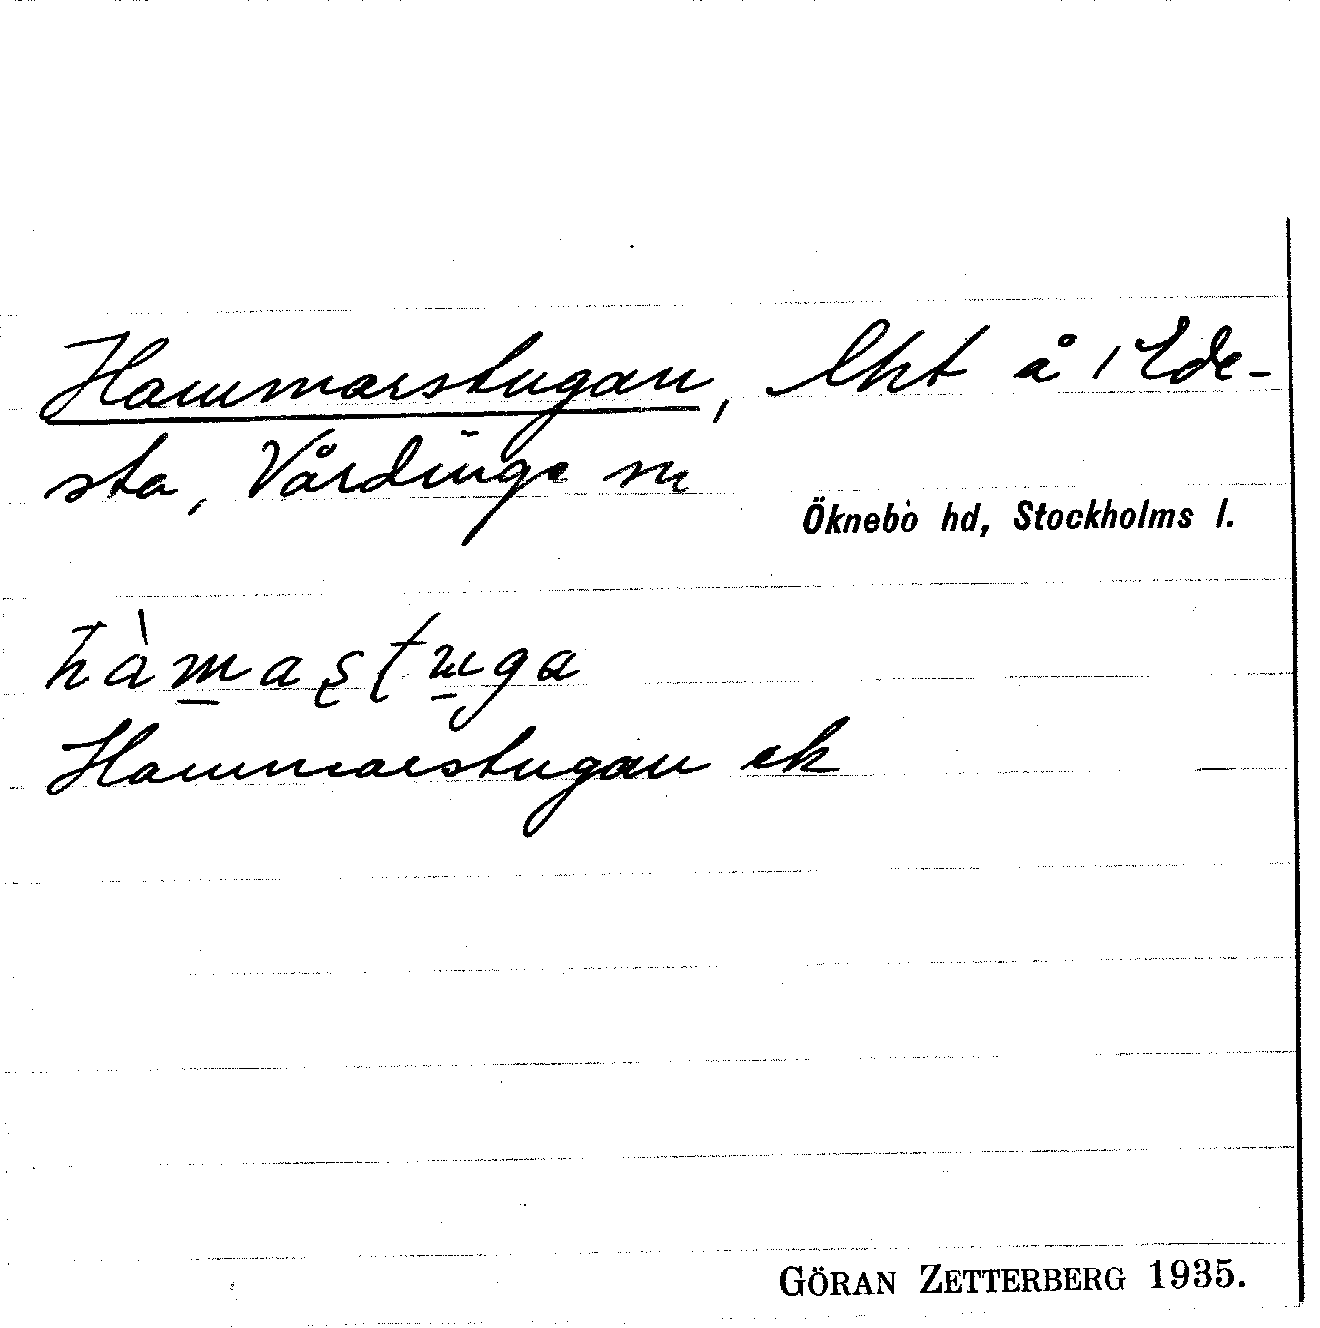 Hammarstugan, lht å Ede-
sta, Vårdinge sn
Öknebo hd, Stockholms l.
hàmaʂʈuga
Hammarstugan ek
GÖRAN ZETTERBERG 1935.